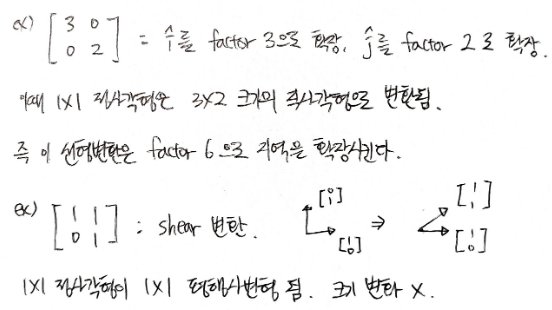 ex) [3 0; 0 2] = î를 factor 3으로 확장, ĵ를 factor 2로 확장.
이때 1X1 정사각형은 3X2 크기의 직사각형으로 변환됨.
즉 이 선형변환은 factor 6으로 지역을 확장시킨다.
ex) [1 1; 0 1] : shear 변환. [0; 1] [1; 0] ⇒ [1; 1] [1; 0]
1X1 정사각형이 1X1 평행사변형 됨. 크기 변화 X.